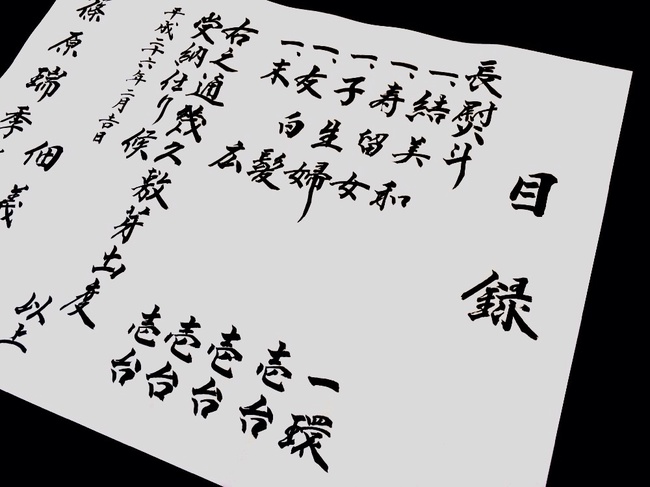 目録
長熨斗 一環
一、結美和 壱台
一、寿留女 壱台
一、子生婦 壱台
一、友白髪 壱台
一、末広
右之通幾久敷芽出度
受納仕り候
以上
平成二十六年二月吉日
佃 義
篠原瑞季